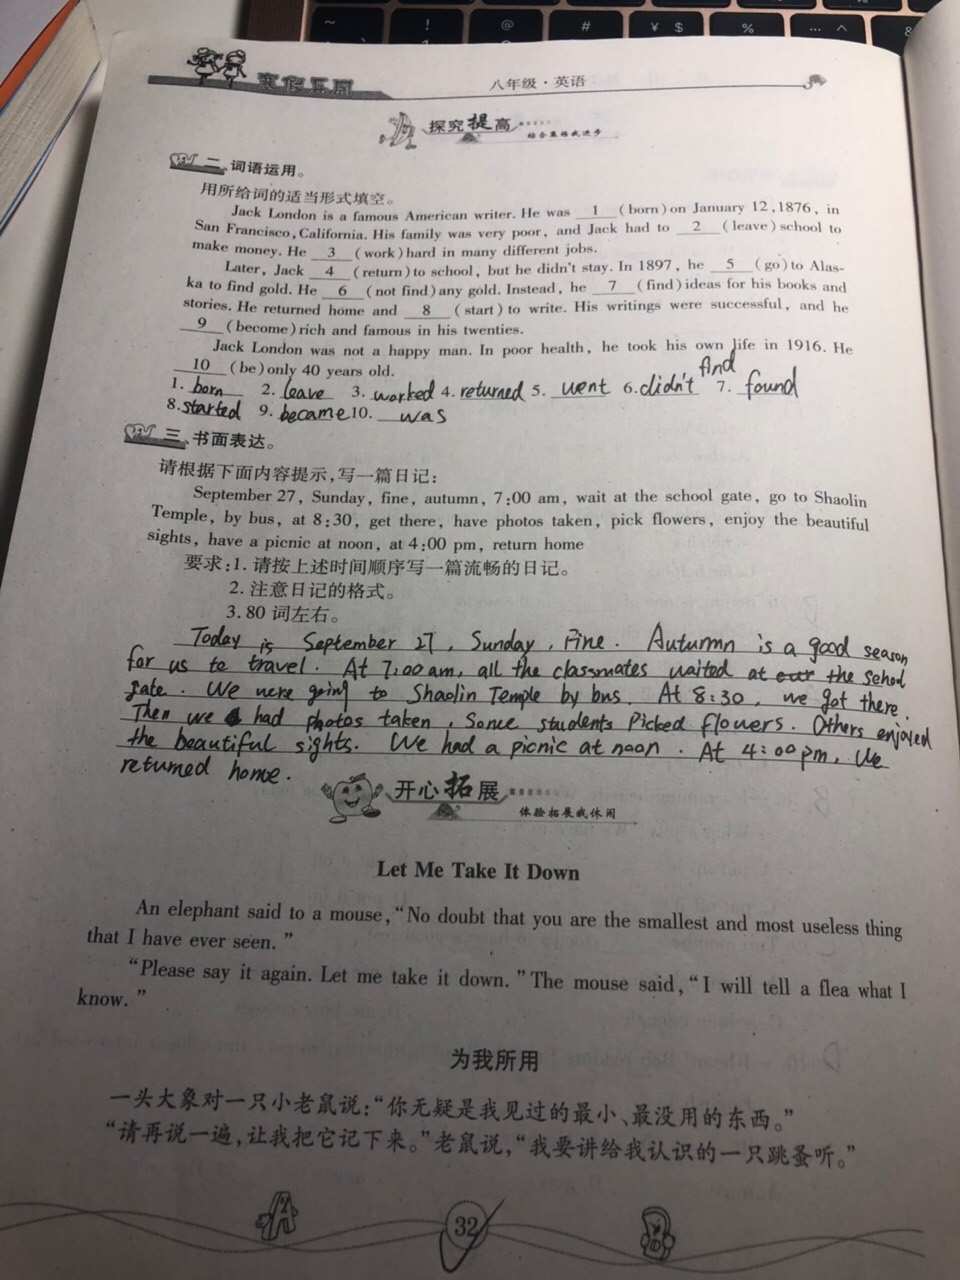 ~ ! @ # ¥ $ % ... ^ &
寒假乐园
八年级·英语
探究提高
结合集练我进步
二、词语运用。
用所给词的适当形式填空。
Jack London is a famous American writer. He was 1 (born) on January 12, 1876, in
San Francisco, California. His family was very poor, and Jack had to 2 (leave) school to
make money. He 3 (work) hard in many different jobs.
Later, Jack 4 (return) to school, but he didn't stay. In 1897, he 5 (go) to Alas-
ka to find gold. He 6 (not find) any gold. Instead, he 7 (find) ideas for his books and
stories. He returned home and 8 (start) to write. His writings were successful, and he
9 (become) rich and famous in his twenties.
Jack London was not a happy man. In poor health, he took his own life in 1916. He
10 (be) only 40 years old.
1. born 2. leave 3. worked 4. returned 5. went 6. didn't find 7. found
8. started 9. became 10. was
三、书面表达。
请根据下面内容提示,写一篇日记:
September 27, Sunday, fine, autumn, 7:00 am, wait at the school gate, go to Shaolin
Temple, by bus, at 8:30, get there, have photos taken, pick flowers, enjoy the beautiful
sights, have a picnic at noon, at 4:00 pm, return home
要求:1. 请按上述时间顺序写一篇流畅的日记。
2. 注意日记的格式。
3. 80 词左右。
Today is September 27, Sunday, Fine. Autumn is a good season
for us to travel. At 7:00 am, all the classmates waited at our the school
gate. We were going to Shaolin Temple by bus. At 8:30, we got there.
Then we had photos taken, Some students Picked flowers. Others enjoyed
the beautiful sights. We had a picnic at noon. At 4:00 pm, We
returned home.
开心拓展
体验拓展我休闲
Let Me Take It Down
An elephant said to a mouse, "No doubt that you are the smallest and most useless thing
that I have ever seen."
"Please say it again. Let me take it down." The mouse said, "I will tell a flea what I
know."
为我所用
一头大象对一只小老鼠说:"你无疑是我见过的最小、最没用的东西。"
"请再说一遍,让我把它记下来。"老鼠说,"我要讲给我认识的一只跳蚤听。"
32